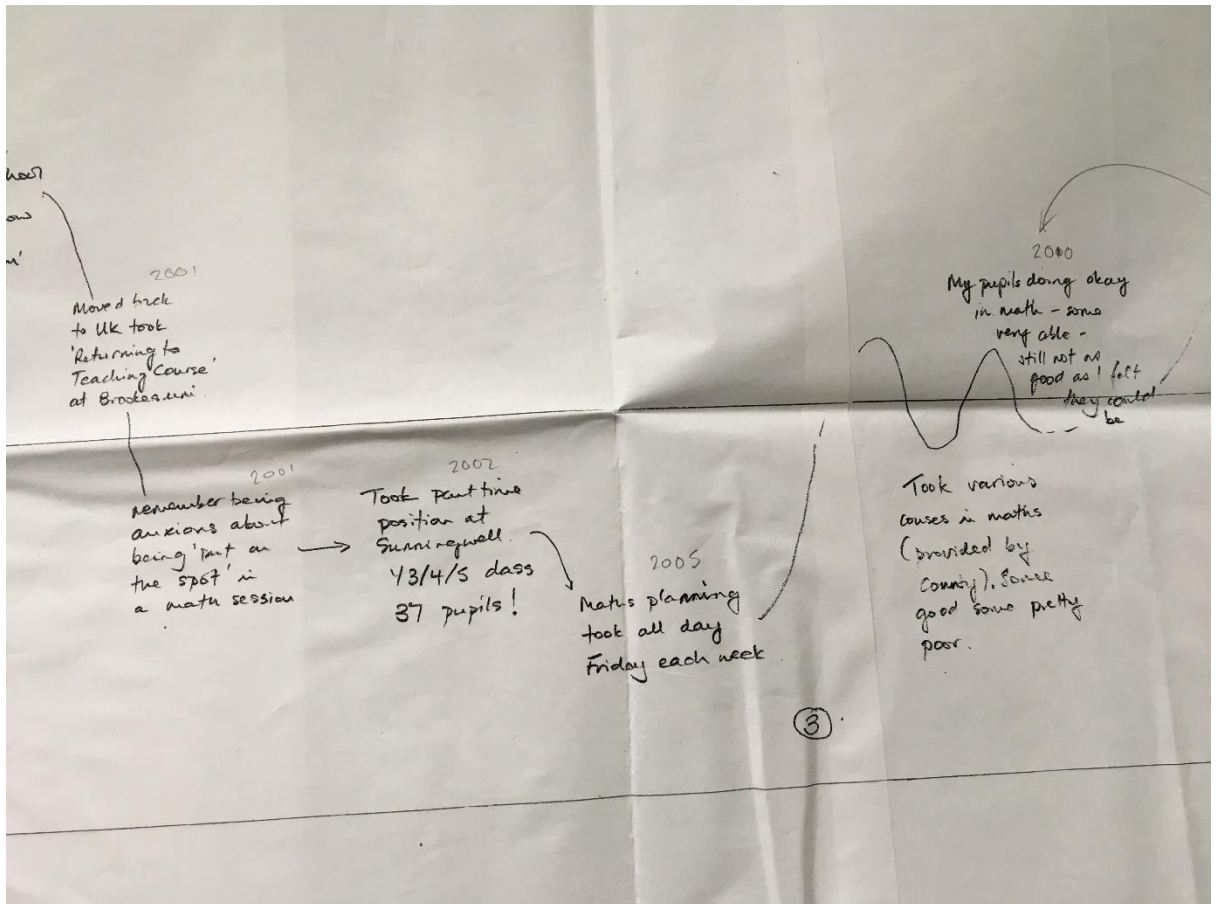 ow
2001
Moved back
to UK took
'Returning to
Teaching Course'
at Brookes uni.
2001
remember being
anxious about
being 'put on
the spot' in
a math session
2002
Took part time
position at
Sunningwell.
Y3/4/5 class
37 pupils!
2005
Maths planning
took all day
Friday each week
3
2000
My pupils doing okay
in math - some
very able -
still not as
good as I felt
they could
be
Took various
couses in maths
(provided by
County). Some
good some pretty
poor.